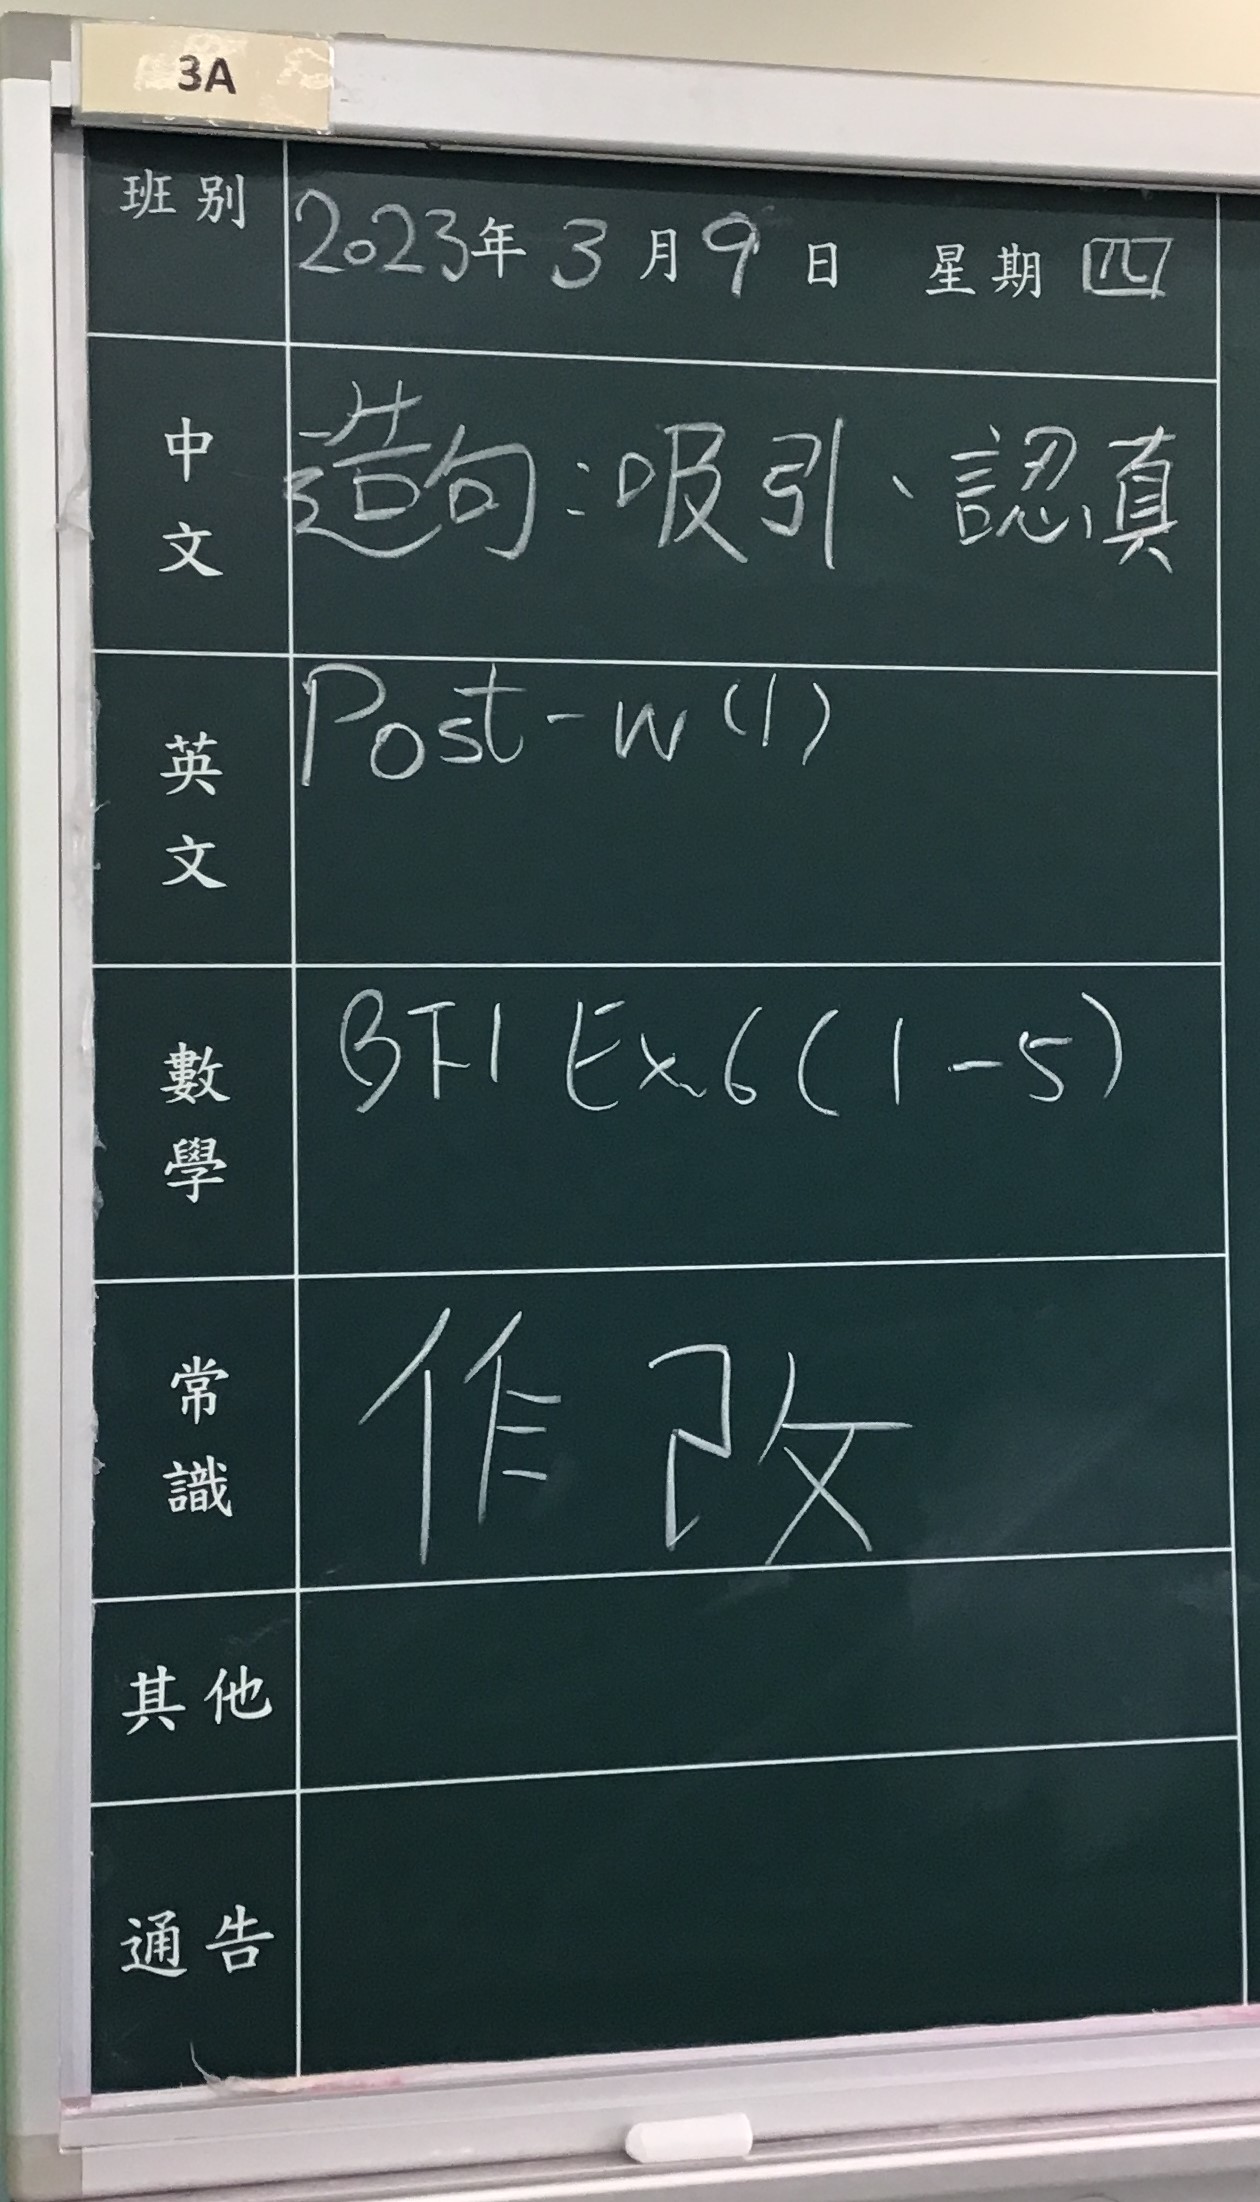 3A
班別 2023年 3 月 9 日 星期 四
中文 造句：吸引、認真
英文 Post-W(1)
數學 3下1 Ex.6(1-5)
常識 作 改
其他
通告